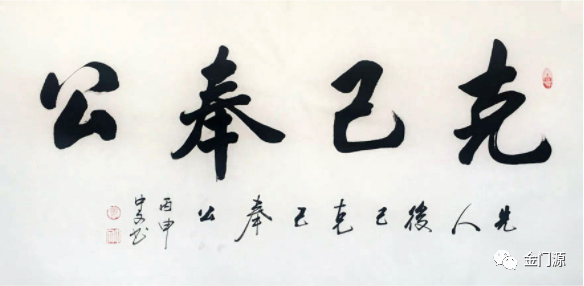 克己奉公
先人後己克己奉公
丙申
金门源